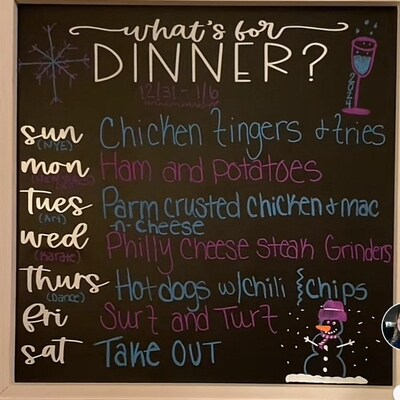 what's for
DINNER?
12/31 - 1/6
2024
sun Chicken fingers & fries
(NYE)
mon Ham and potatoes
tues Parm crusted chicken & mac
(Art) n cheese
wed Philly cheese steak Grinders
(Karate)
thurs Hotdogs w/chili & chips
(Dance)
fri Surf and Turf
sat Take OUT